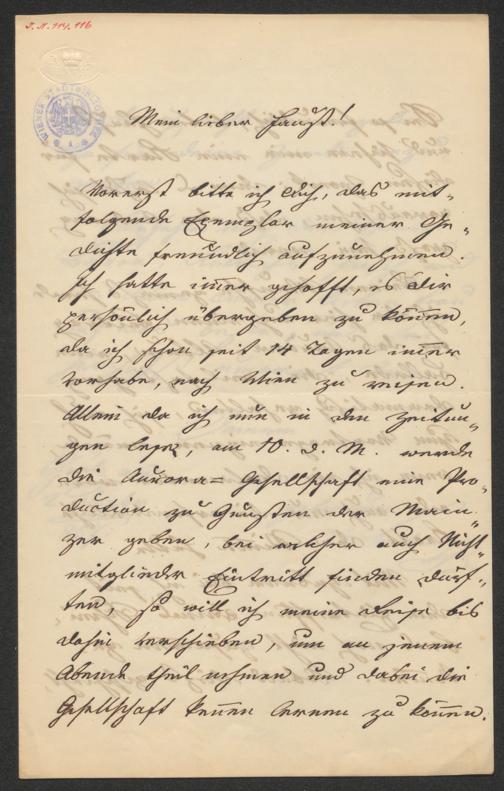 J. N. 114.116
WIENER STADTBIBLIOTHEK
Mein lieber Faust!
Vorerst bitte ich Dich, das mit-
folgende Exemplar meiner Ge-
dichte freundlich aufzunehmen.
Ich hatte immer gehofft, es Dir
persönlich übergeben zu können,
da ich schon seit 14 Tagen immer
vorhabe, nach Wien zu reisen.
Allein da ich nun in den Zeitun-
gen lese, am 10. d. M. werde
die Aurora-Gesellschaft eine Pro-
duction zu Gunsten der Main-
zer geben, bei welcher auch Nicht-
mitglieder Eintritt finden dürf-
ten, so will ich meine Reise bis
dahin verschieben, um an jenem
Abende theil nehmen und dabei die
Gesellschaft kennen lernen zu können.